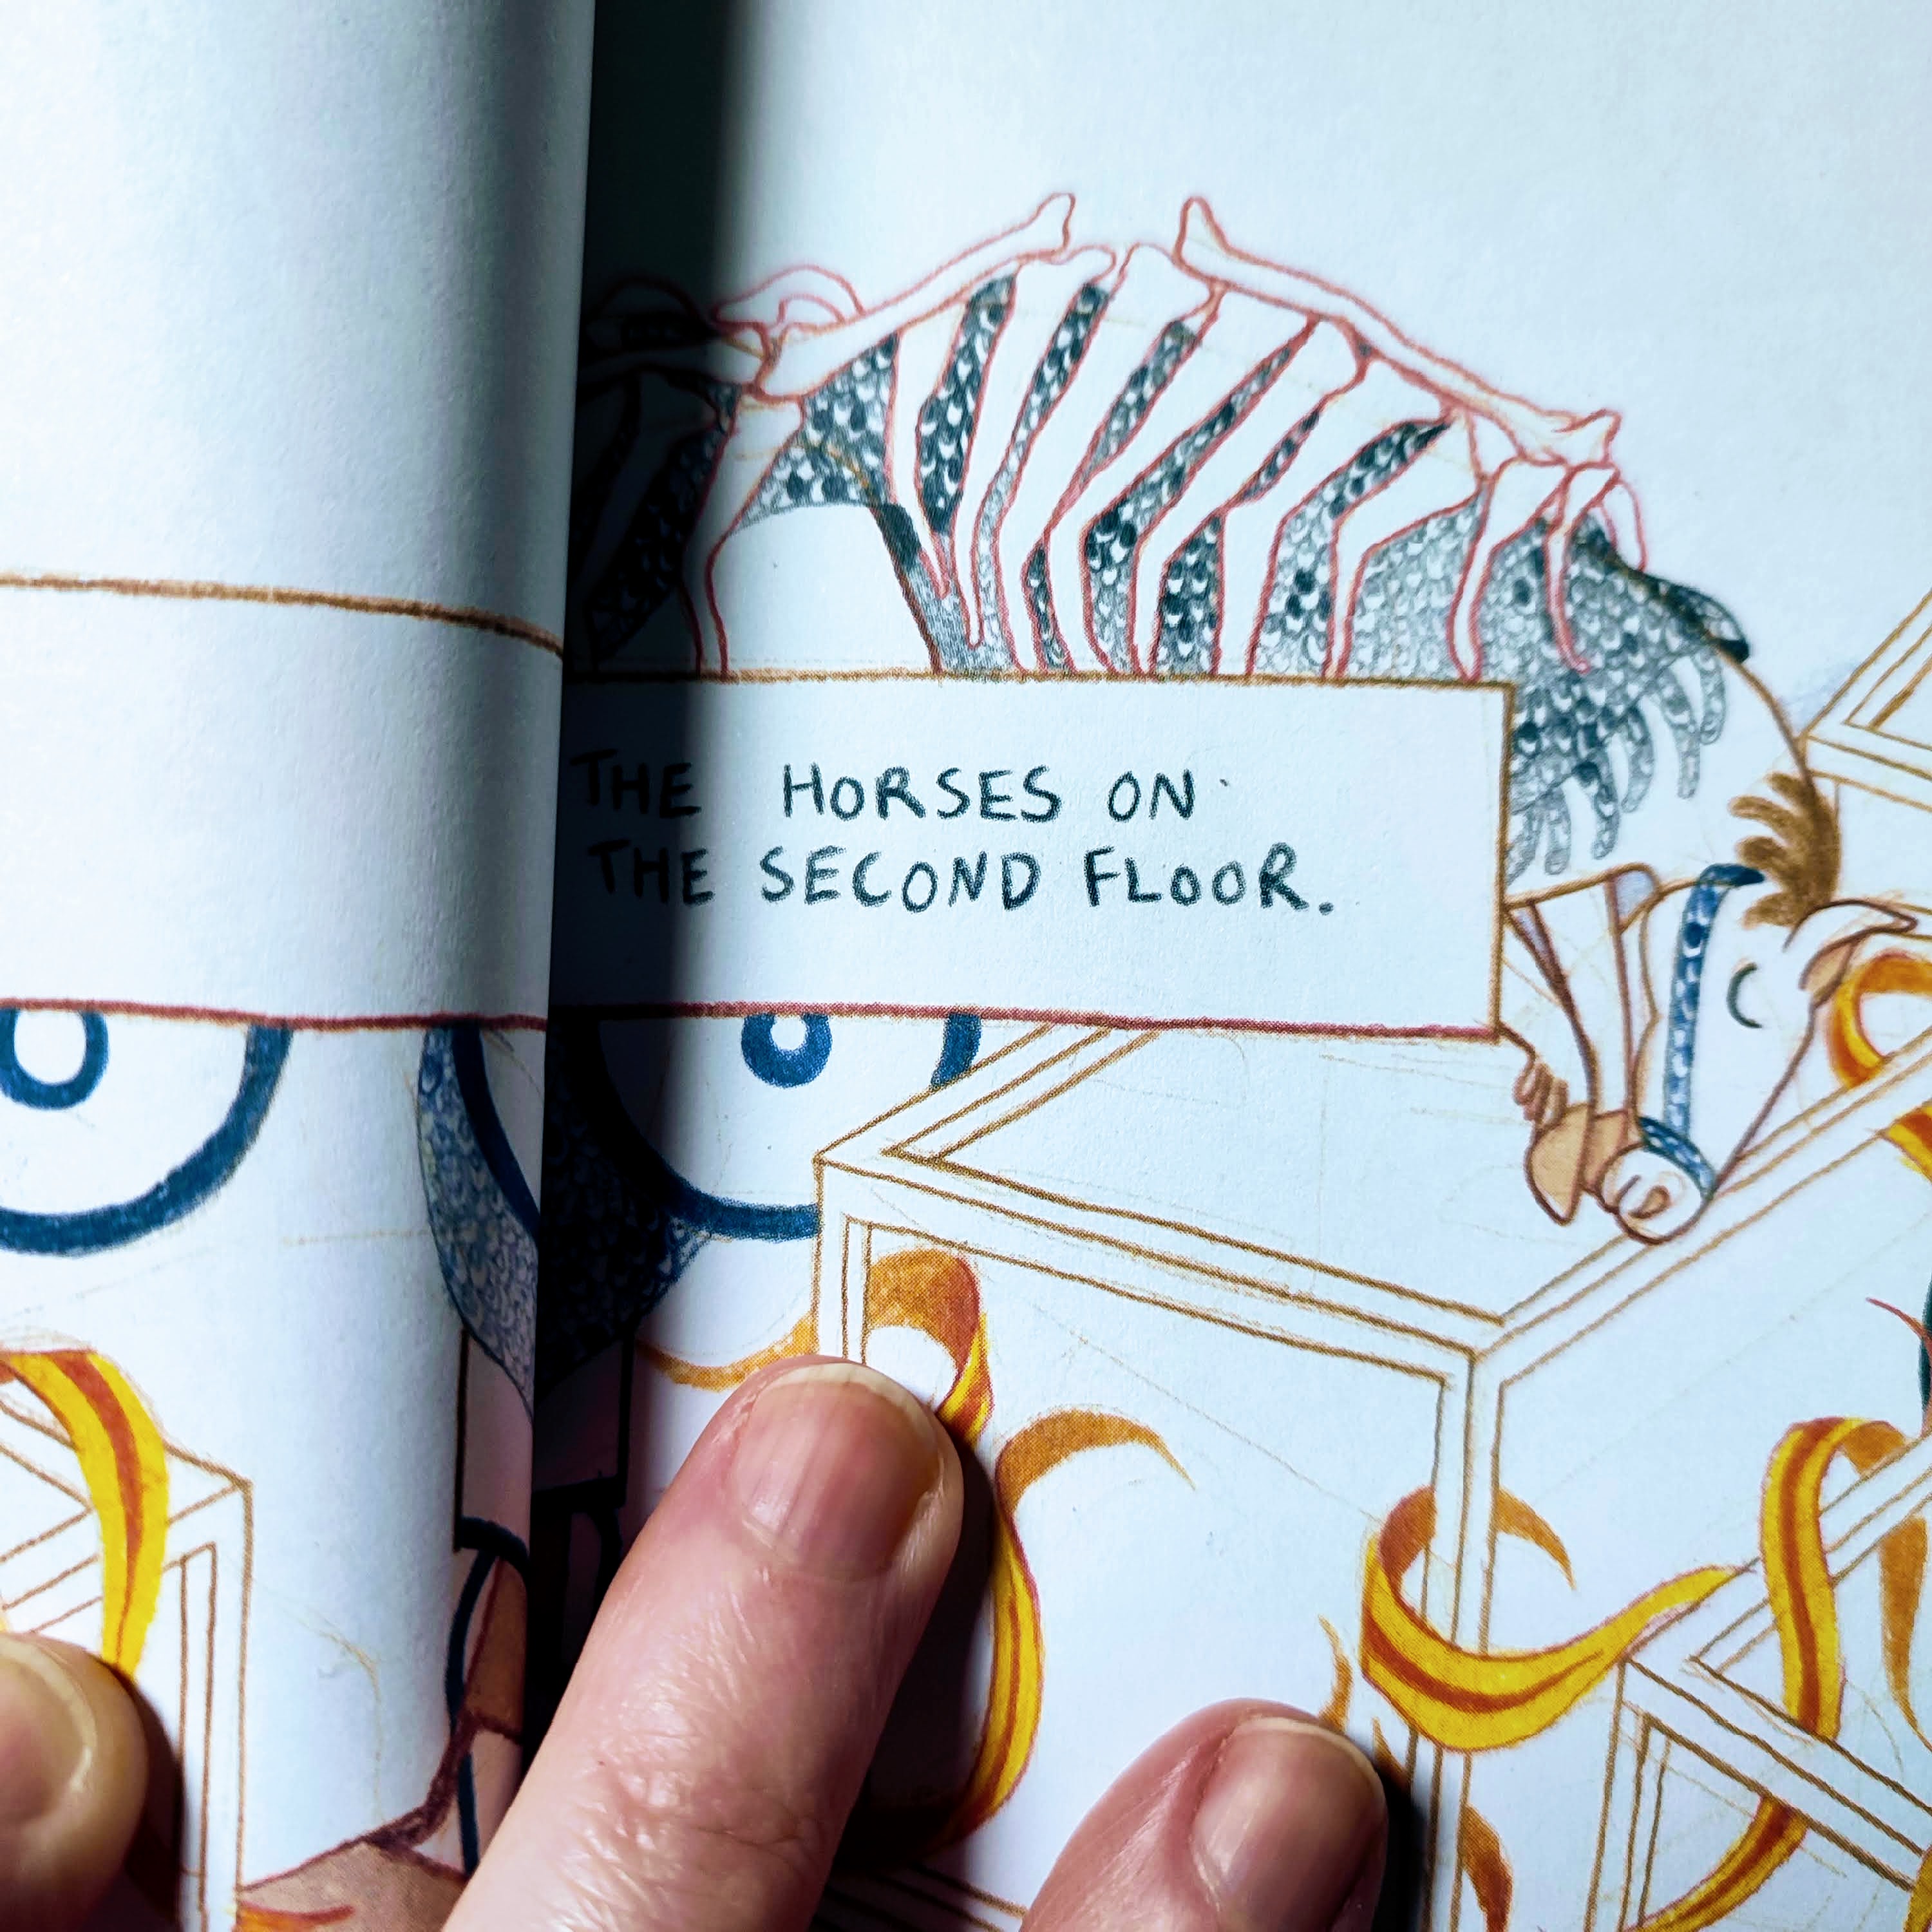 THE HORSES ON
THE SECOND FLOOR.